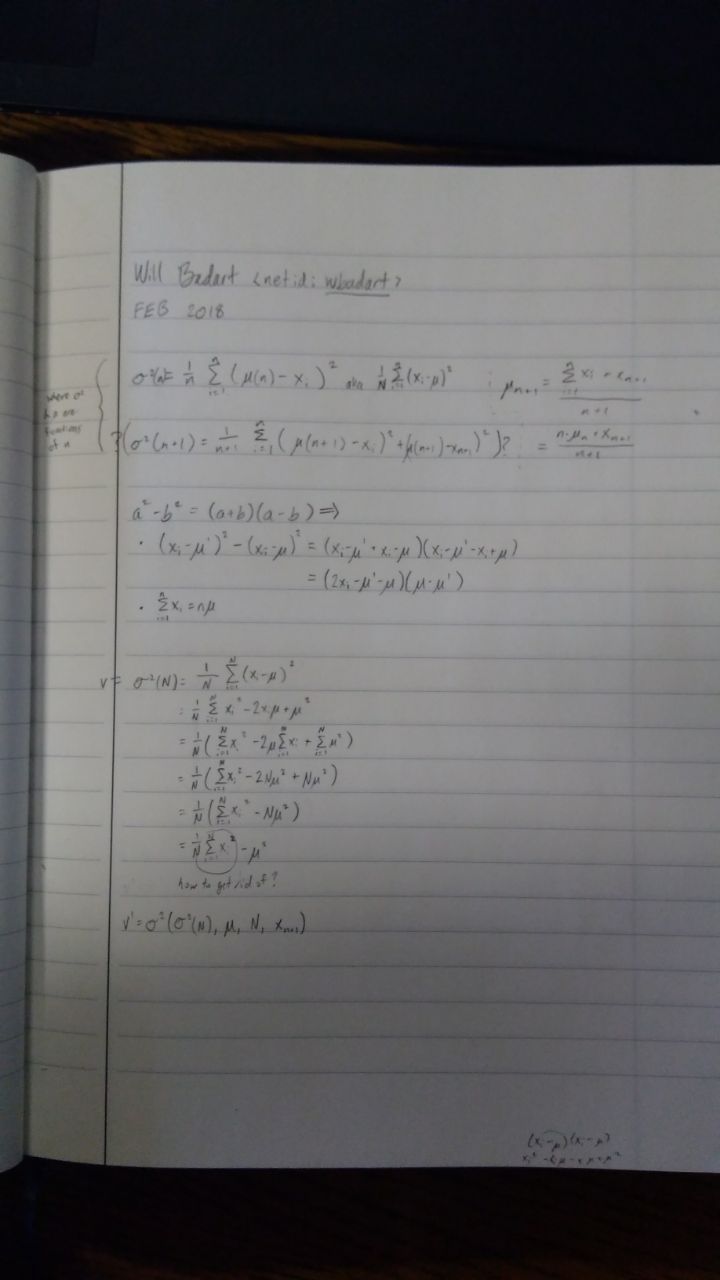 Will Badart <netid: wbadart>
FEB 2018
where σ²
& μ are
functions
of n
σ²(n) = 1/n Σ_{i=1}^{n} (μ(n) - x_i)² aka 1/N Σ_{i=1}^{n} (x_i - μ)²
μ_{n+1} = (Σ_{i=1}^{n} x_i + x_{n+1}) / (n+1)
?(σ²(n+1) = 1/(n+1) Σ_{i=1}^{n} (μ(n+1) - x_i)² + (μ(n+1) - x_{n+1})²)?
= (n·μ_n + x_{n+1}) / (n+1)
a² - b² = (a+b)(a-b) ⇒
• (x_i - μ')² - (x_i - μ)² = (x_i - μ' + x_i - μ)(x_i - μ' - x_i + μ)
= (2x_i - μ' - μ)(μ - μ')
• Σ_{i=1}^{n} x_i = nμ
v = σ²(N) = 1/N Σ_{i=1}^{N} (x_i - μ)²
= 1/N Σ_{i=1}^{N} x_i² - 2x_iμ + μ²
= 1/N (Σ_{i=1}^{N} x_i² - 2μ Σ_{i=1}^{N} x_i + Σ_{i=1}^{N} μ²)
= 1/N (Σ_{i=1}^{N} x_i² - 2Nμ² + Nμ²)
= 1/N (Σ_{i=1}^{N} x_i² - Nμ²)
= 1/N Σ_{i=1}^{N} x_i² - μ²
how to get rid of?
v' = σ²(σ²(N), μ, N, x_{n+1})
(x_i - μ)(x_i - μ)